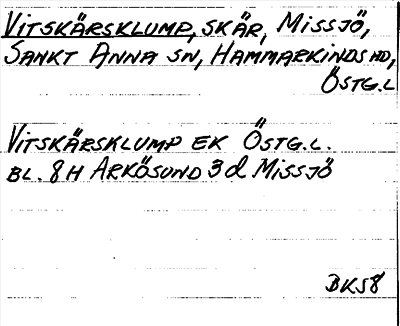 VITSKÄRSKLUMP, SKÄR, MISSJÖ,
SANKT ANNA SN, HAMMARKINDS HD,
ÖSTG.L
VITSKÄRSKLUMP EK ÖSTG.L.
BL. 8H ARKÖSUND 3d MISSJÖ
BKS8